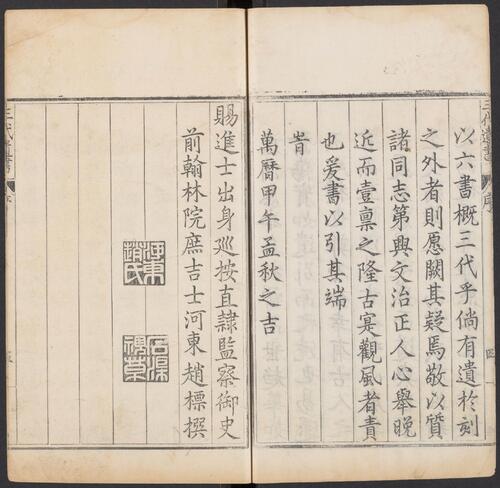 三代遺書
序
四
以六書概三代乎倘有遺於刻
之外者則愿闕其疑焉敬以質
諸同志第興文治正人心舉晚
近而壹稟之隆古寔觀風者責
也爰書以引其端
旹
萬曆甲午孟秋之吉
賜進士出身巡按直隸監察御史
前翰林院庶吉士河東趙標撰
河東趙氏
三代遺書
序
五